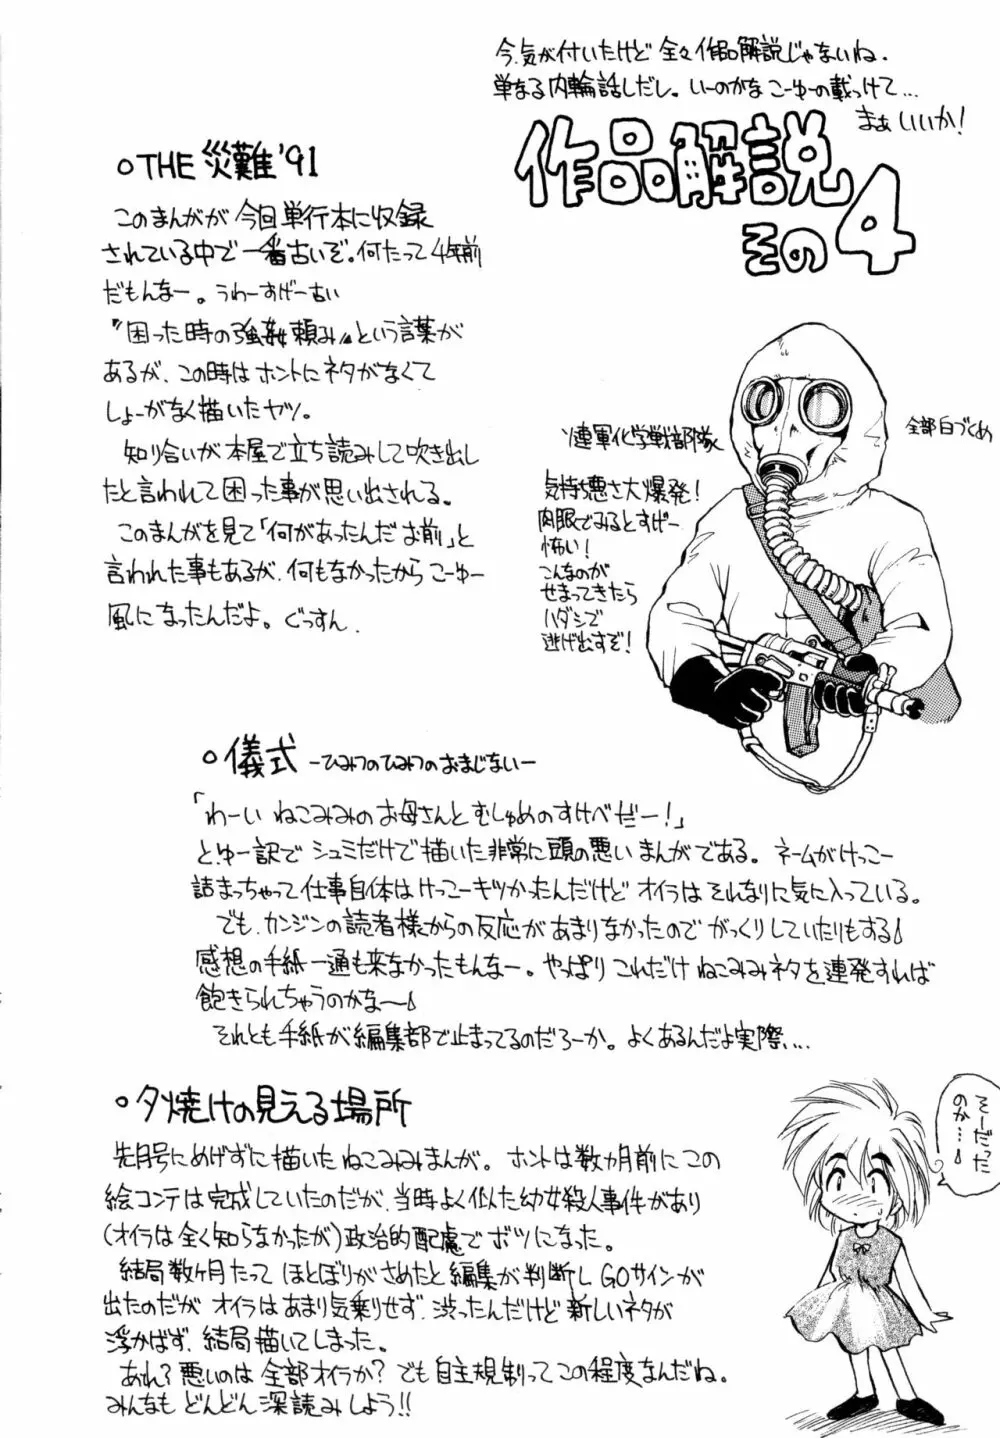 今、気が付いたけど 全々作品解説じゃないね.
単なる内輪話しだし。いーのかな こーゆーの載っけて...
まぁいいか!
作品解説
その4
○THE 災難'91
このまんがが今回単行本に収録
されている中で一番古いぞ。何たって4年前
だもんなー。うわーすげー古い
〝困った時の強姦頼み〟という言葉が
あるが、この時はホントにネタがなくて
しょーがなく描いたヤツ。
知り合いが本屋で立ち読みして吹き出し
たと言われて困った事が思い出される。
このまんがを見て「何があったんだお前」と
言われた事もあるが、何もなかったからこーゆー
風になったんだよ。ぐっすん.
ソ連軍化学戦部隊
全部白づくめ
気持ち悪さ大爆発!
肉眼でみるとすげー
怖い!
こんなのが
せまってきたら
ハダシで
逃げ出すぞ!
○儀式 −ひみつのひみつのおまじない−
「わーい ねこみみのお母さんとむしゅめのすけべだー!」
とゆー訳で シュミだけで描いた非常に頭の悪いまんがである。ネームがけっこー
詰まっちゃって仕事自体はけっこーキツかったんだけど オイラはそれなりに気に入っている。
でも、カンジンの読者様からの反応があまりなかったので がっくりしていたりもする
感想の手紙一通も来なかったもんなー。やっぱりこれだけ ねこみみネタを連発すれば
飽きられちゃうのかな〜
それとも手紙が編集部で止まってるのだろーか。よくあるんだよ実際...
○夕焼けの見える場所
先月号にめげずに描いたねこみみまんが。ホントは数カ月前にこの
絵コンテは完成していたのだが、当時よく似た幼女殺人事件があり
(オイラは全く知らなかったが)政治的配慮でボツになった。
結局数ヶ月たって ほとぼりがさめたと編集が判断しGOサインが
出たのだが オイラはあまり気乗りせず、渋ったんだけど新しいネタが
浮かばず、結局描いてしまった。
あれ?悪いのは全部オイラか?でも自主規制ってこの程度なんだね。
みんなも どんどん深読みしよう!!
そーだった
のか...